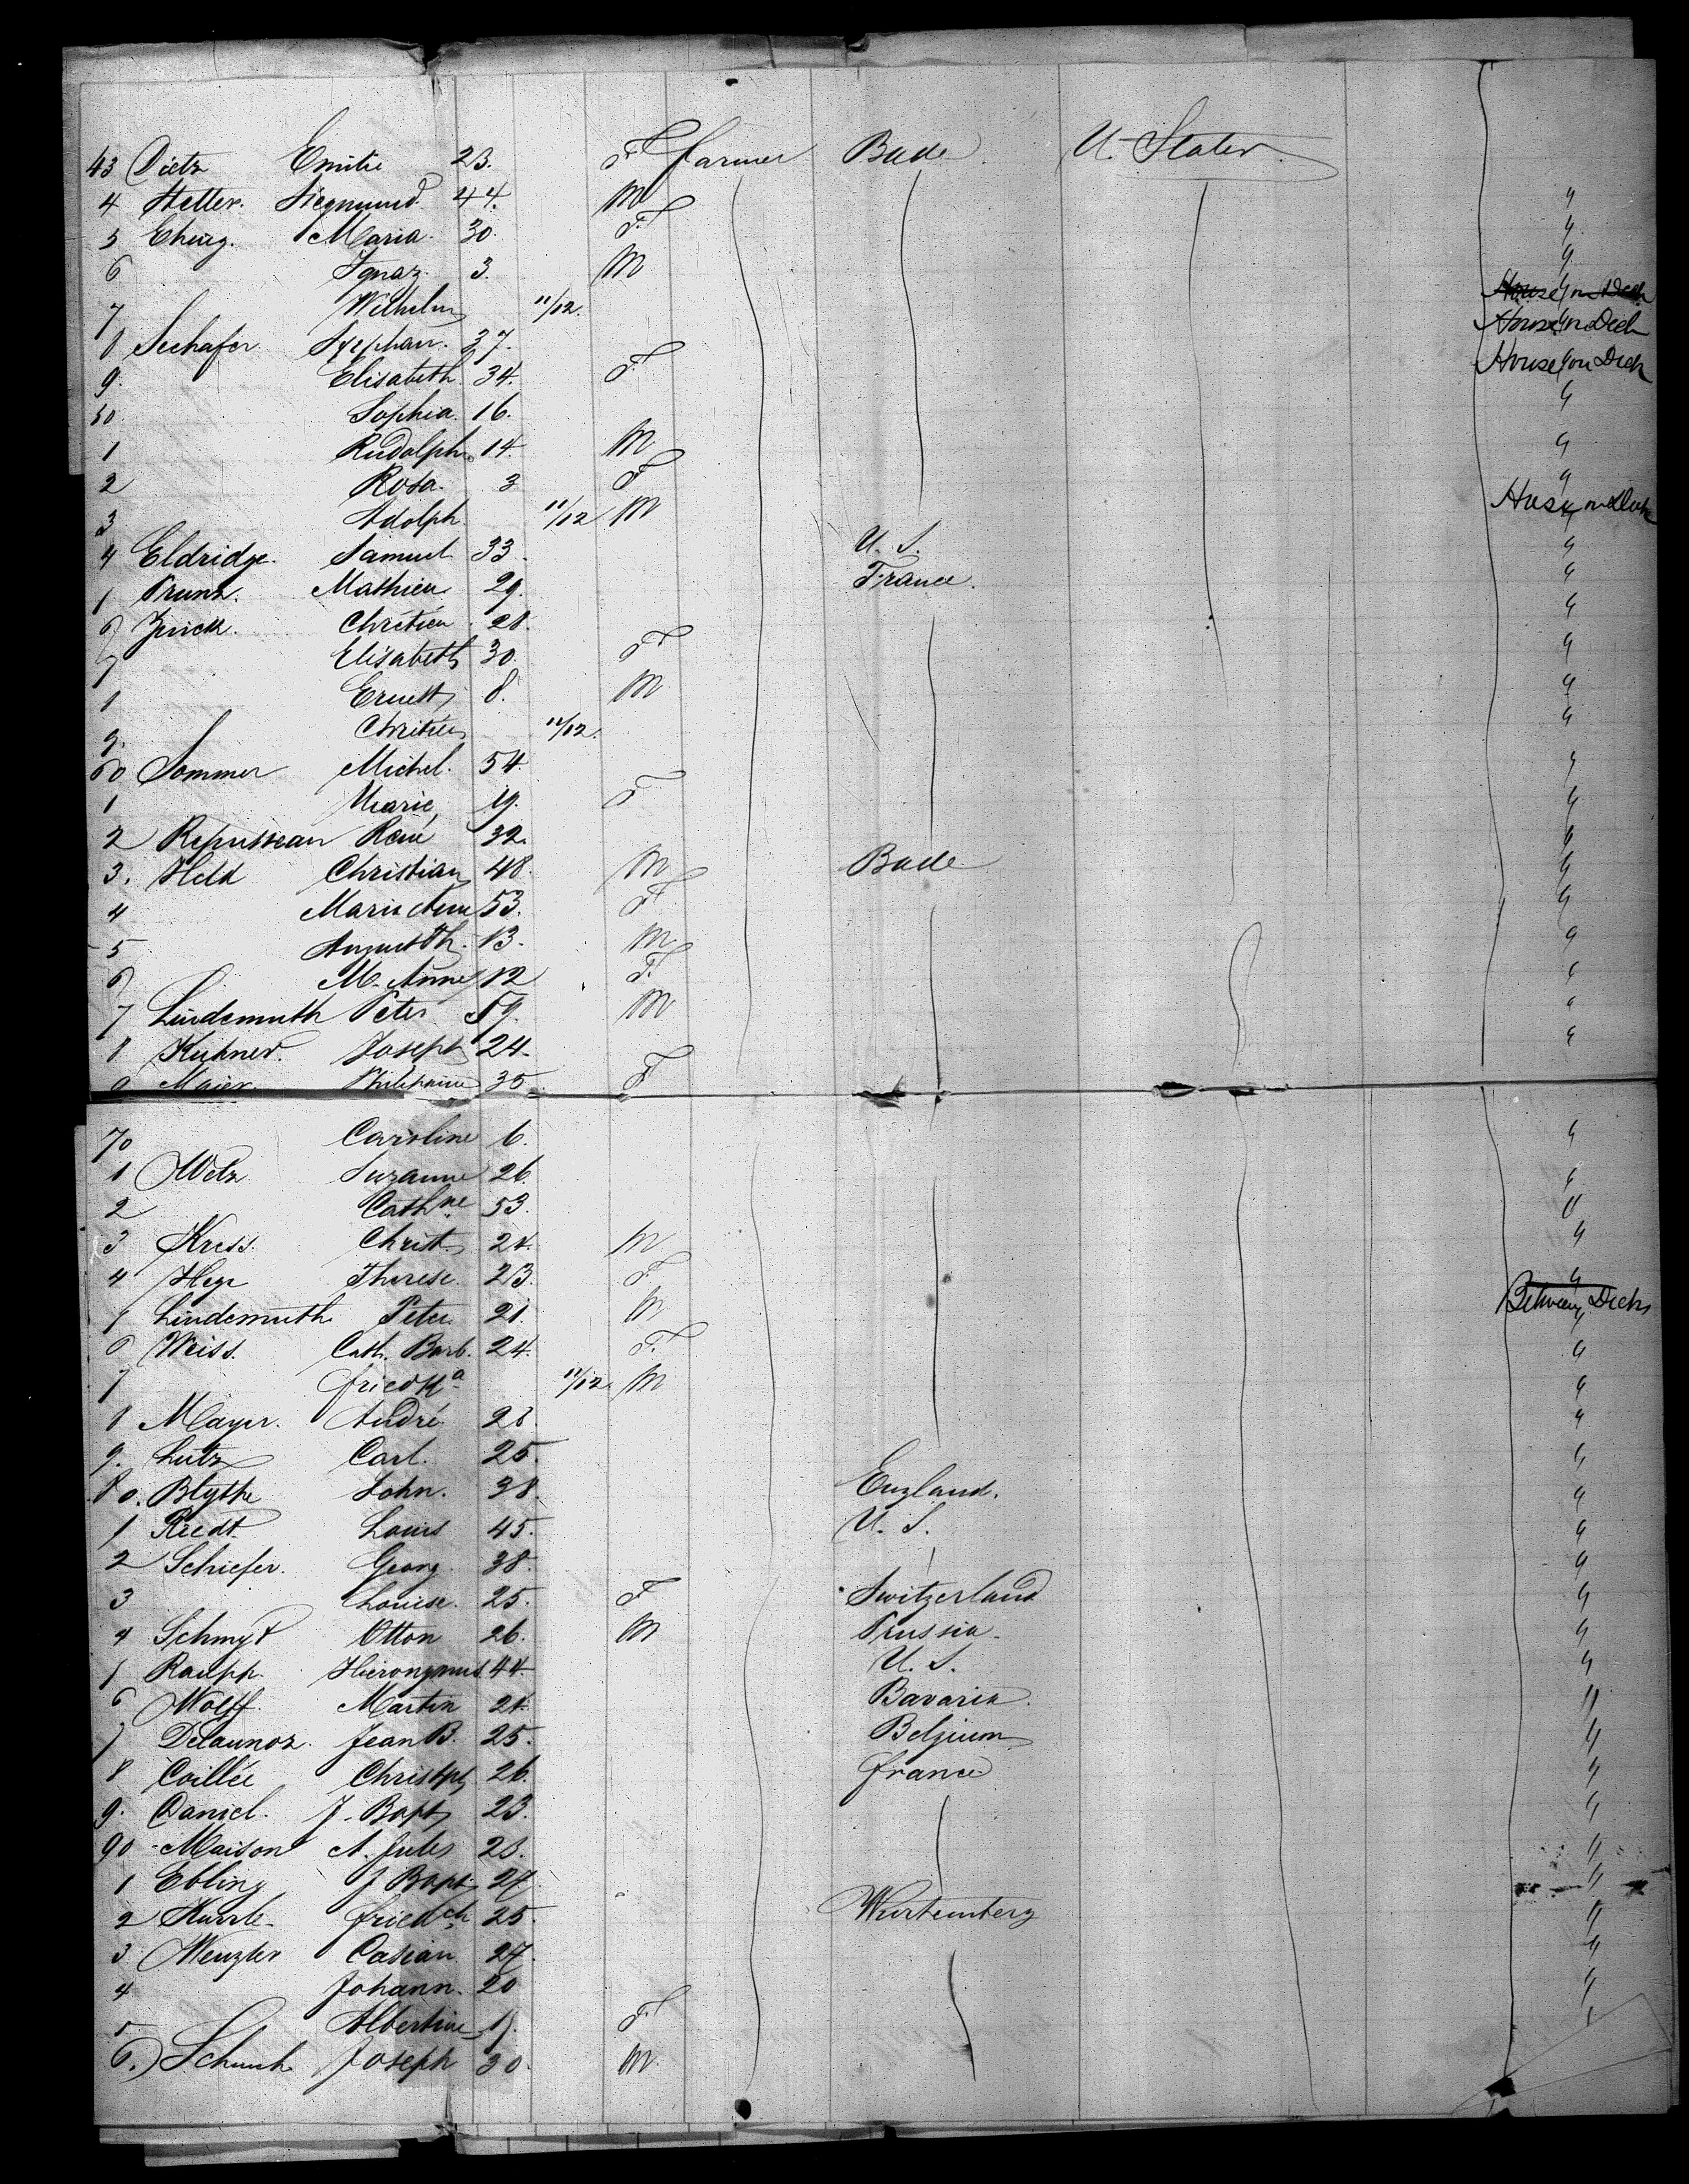 43 Dietz Emilie 23. F farmer Bade. U. States.
4 Hetter. Siegmund 44. M "
5 Maria. 30. F. "
6 Ignaz. 3. M "
7 Wilhelm 11/12.
8 Seehafer Stephan. 37. House on Deck
9. Elisabeth. 34. F House on Deck
50. Sophia. 16. "
1 Rudolph. 14. M "
2 Rosa. 3 F "
3 Adolph. 11/12 M
4 Eldridge. Samuel 33. U. S. "
Mathieu 29. France. "
6 Chrétien 28. "
7 Elisabeth 30. F "
Ernest 8. M "
9. Chrétien 11/12. "
60 Sommer Michel. 54. "
1 Marie 19. F "
2 Repusseau René 32. "
3. Held Christian 48. M Bade "
4 Marie Anne 53. F "
5 August Th. 13. M "
6 M. Anne 12 F. "
7 Lindemuth Peter 59. M "
8 Joseph 24. "
9 Maier. 35 F
70 Caroline 6. "
1 Suzanne 26. "
2 Cathne 53. "
3 Kress. Christ. M "
4 Therese 23. F "
Lindemuth Peter 21. M Between Decks
6 Weiss. Cath. Barb. 24. F. "
7 11/12. M "
8 Mayer. André "
9. Lutz Carl. 25. "
80. Blythe John. 38. England. "
1 Riedt Louis 45. U. S. "
2 Schiefer. Georg. 38. "
3 Louise. 25. F Switzerland "
4 Otton 26. M Prussia "
Raupp. Hieronymus 44. U. S. "
6 Wolff. Martin Bavaria. "
7 Delaunoz. Jean B. 25. Belgium "
8 Coillée Christph 26. France "
9. Daniel. J. Bapt 23. "
90 Maison A. Jules "
1 Ebling J Bapt 27. "
2 Friedch 25. Wurtemberg "
3 Wenzler Casian 27. "
4 Johann. 20 "
5 Albertine F. "
6. Joseph 30. M.